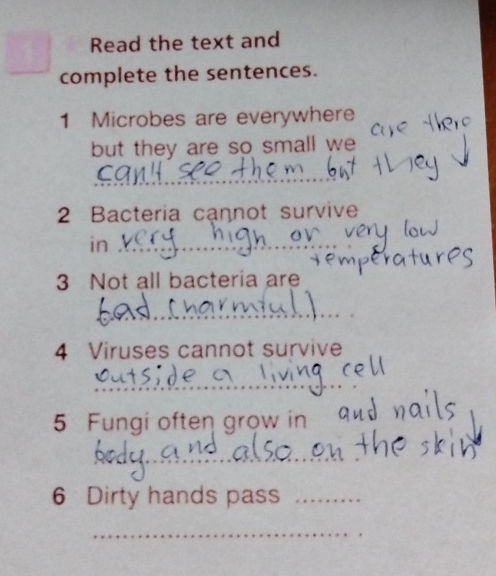 1 Read the text and
complete the sentences.
1 Microbes are everywhere
but they are so small we are there
can't see them but they
2 Bacteria cannot survive
in very high or very low
temperatures
3 Not all bacteria are
bad (harmful)
4 Viruses cannot survive
outside a living cell
5 Fungi often grow in and nails
body and also on the skin
6 Dirty hands pass ..........
.................................... .